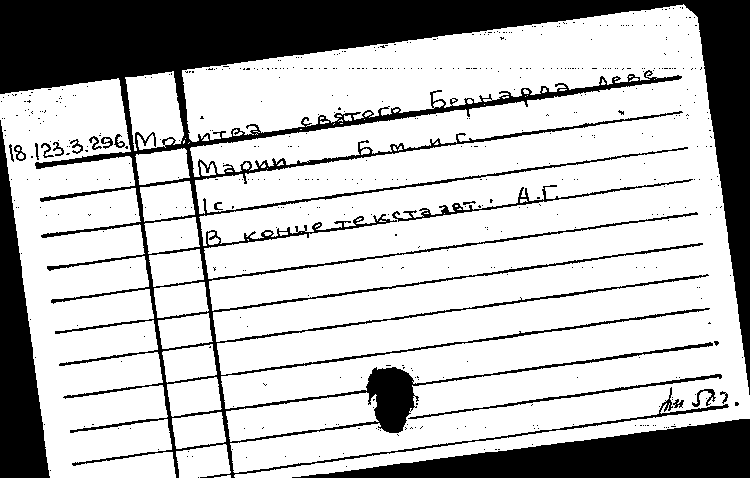 18.123.3.296. Молитва святого Бернарда деве
Марии. — Б.м. и г.
1с.
В конце текста авт.: А.Г.